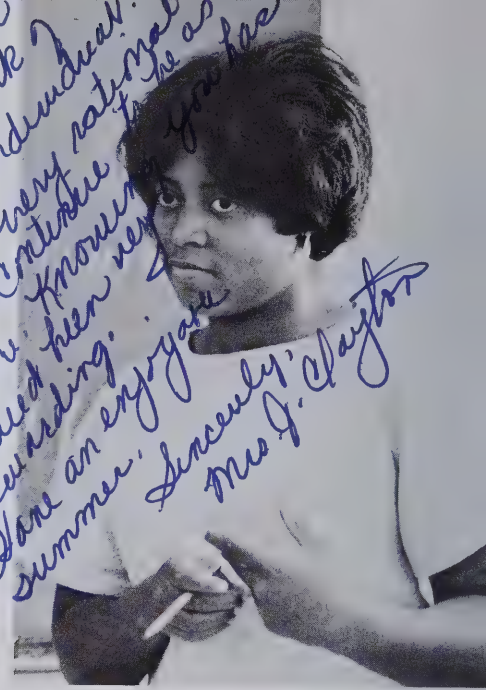 individual.
very rational
Continue to be as
Knowing you has
been very
rewarding.
Have an enjoyable
summer.
Sincerely,
Mrs. J. Clayton